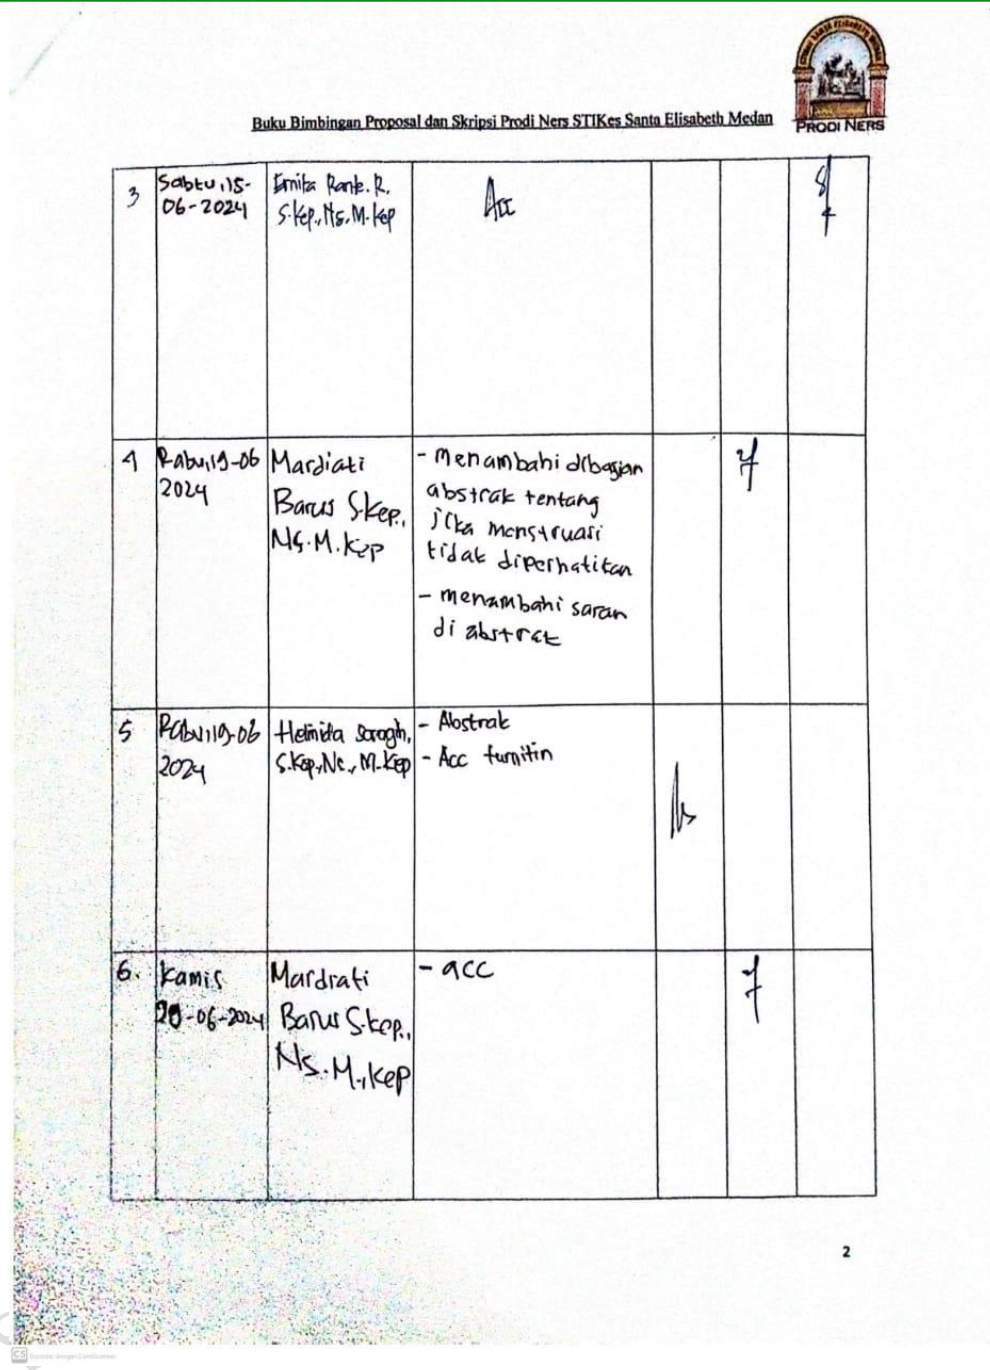 PRODI NERS
Buku Bimbingan Proposal dan Skripsi Prodi Ners STIKes Santa Elisabeth Medan
3
Sabtu, 15-
06-2024
Ernita Rante. R.
S.Kep., Ns. M.Kep
Acc
4
Rabu, 19-06
2024
Mardiati
Barus S.Kep.,
Ns. M.Kep
- menambahi dibagian
abstrak tentang
jika menstruasi
tidak diperhatikan
- menambahi saran
di abstrak
5
Rabu, 19-06
2024
S.Kep., Ns., M.Kep
- Abstrak
- Acc turnitin
6.
Kamis
20-06-2024
Mardiati
Barus S.kep.,
Ns. M.,kep
- acc
2
CS Dipindai dengan CamScanner